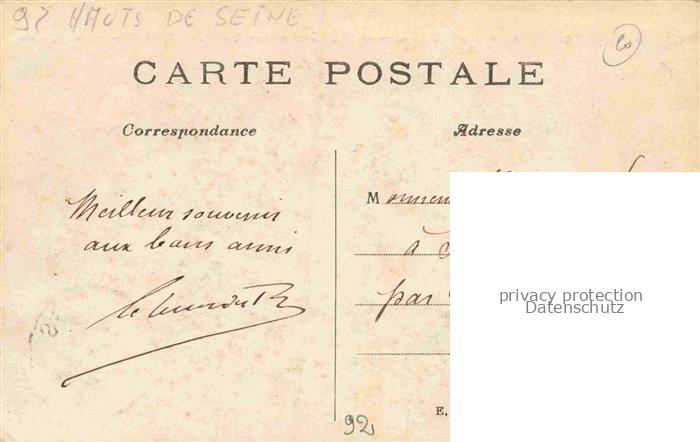 92 HAUTS DE SEINE
CARTE POSTALE
Correspondance
Adresse
Meilleur souvenir
aux bons amis
M
à
par
privacy protection
Datenschutz
E.
92